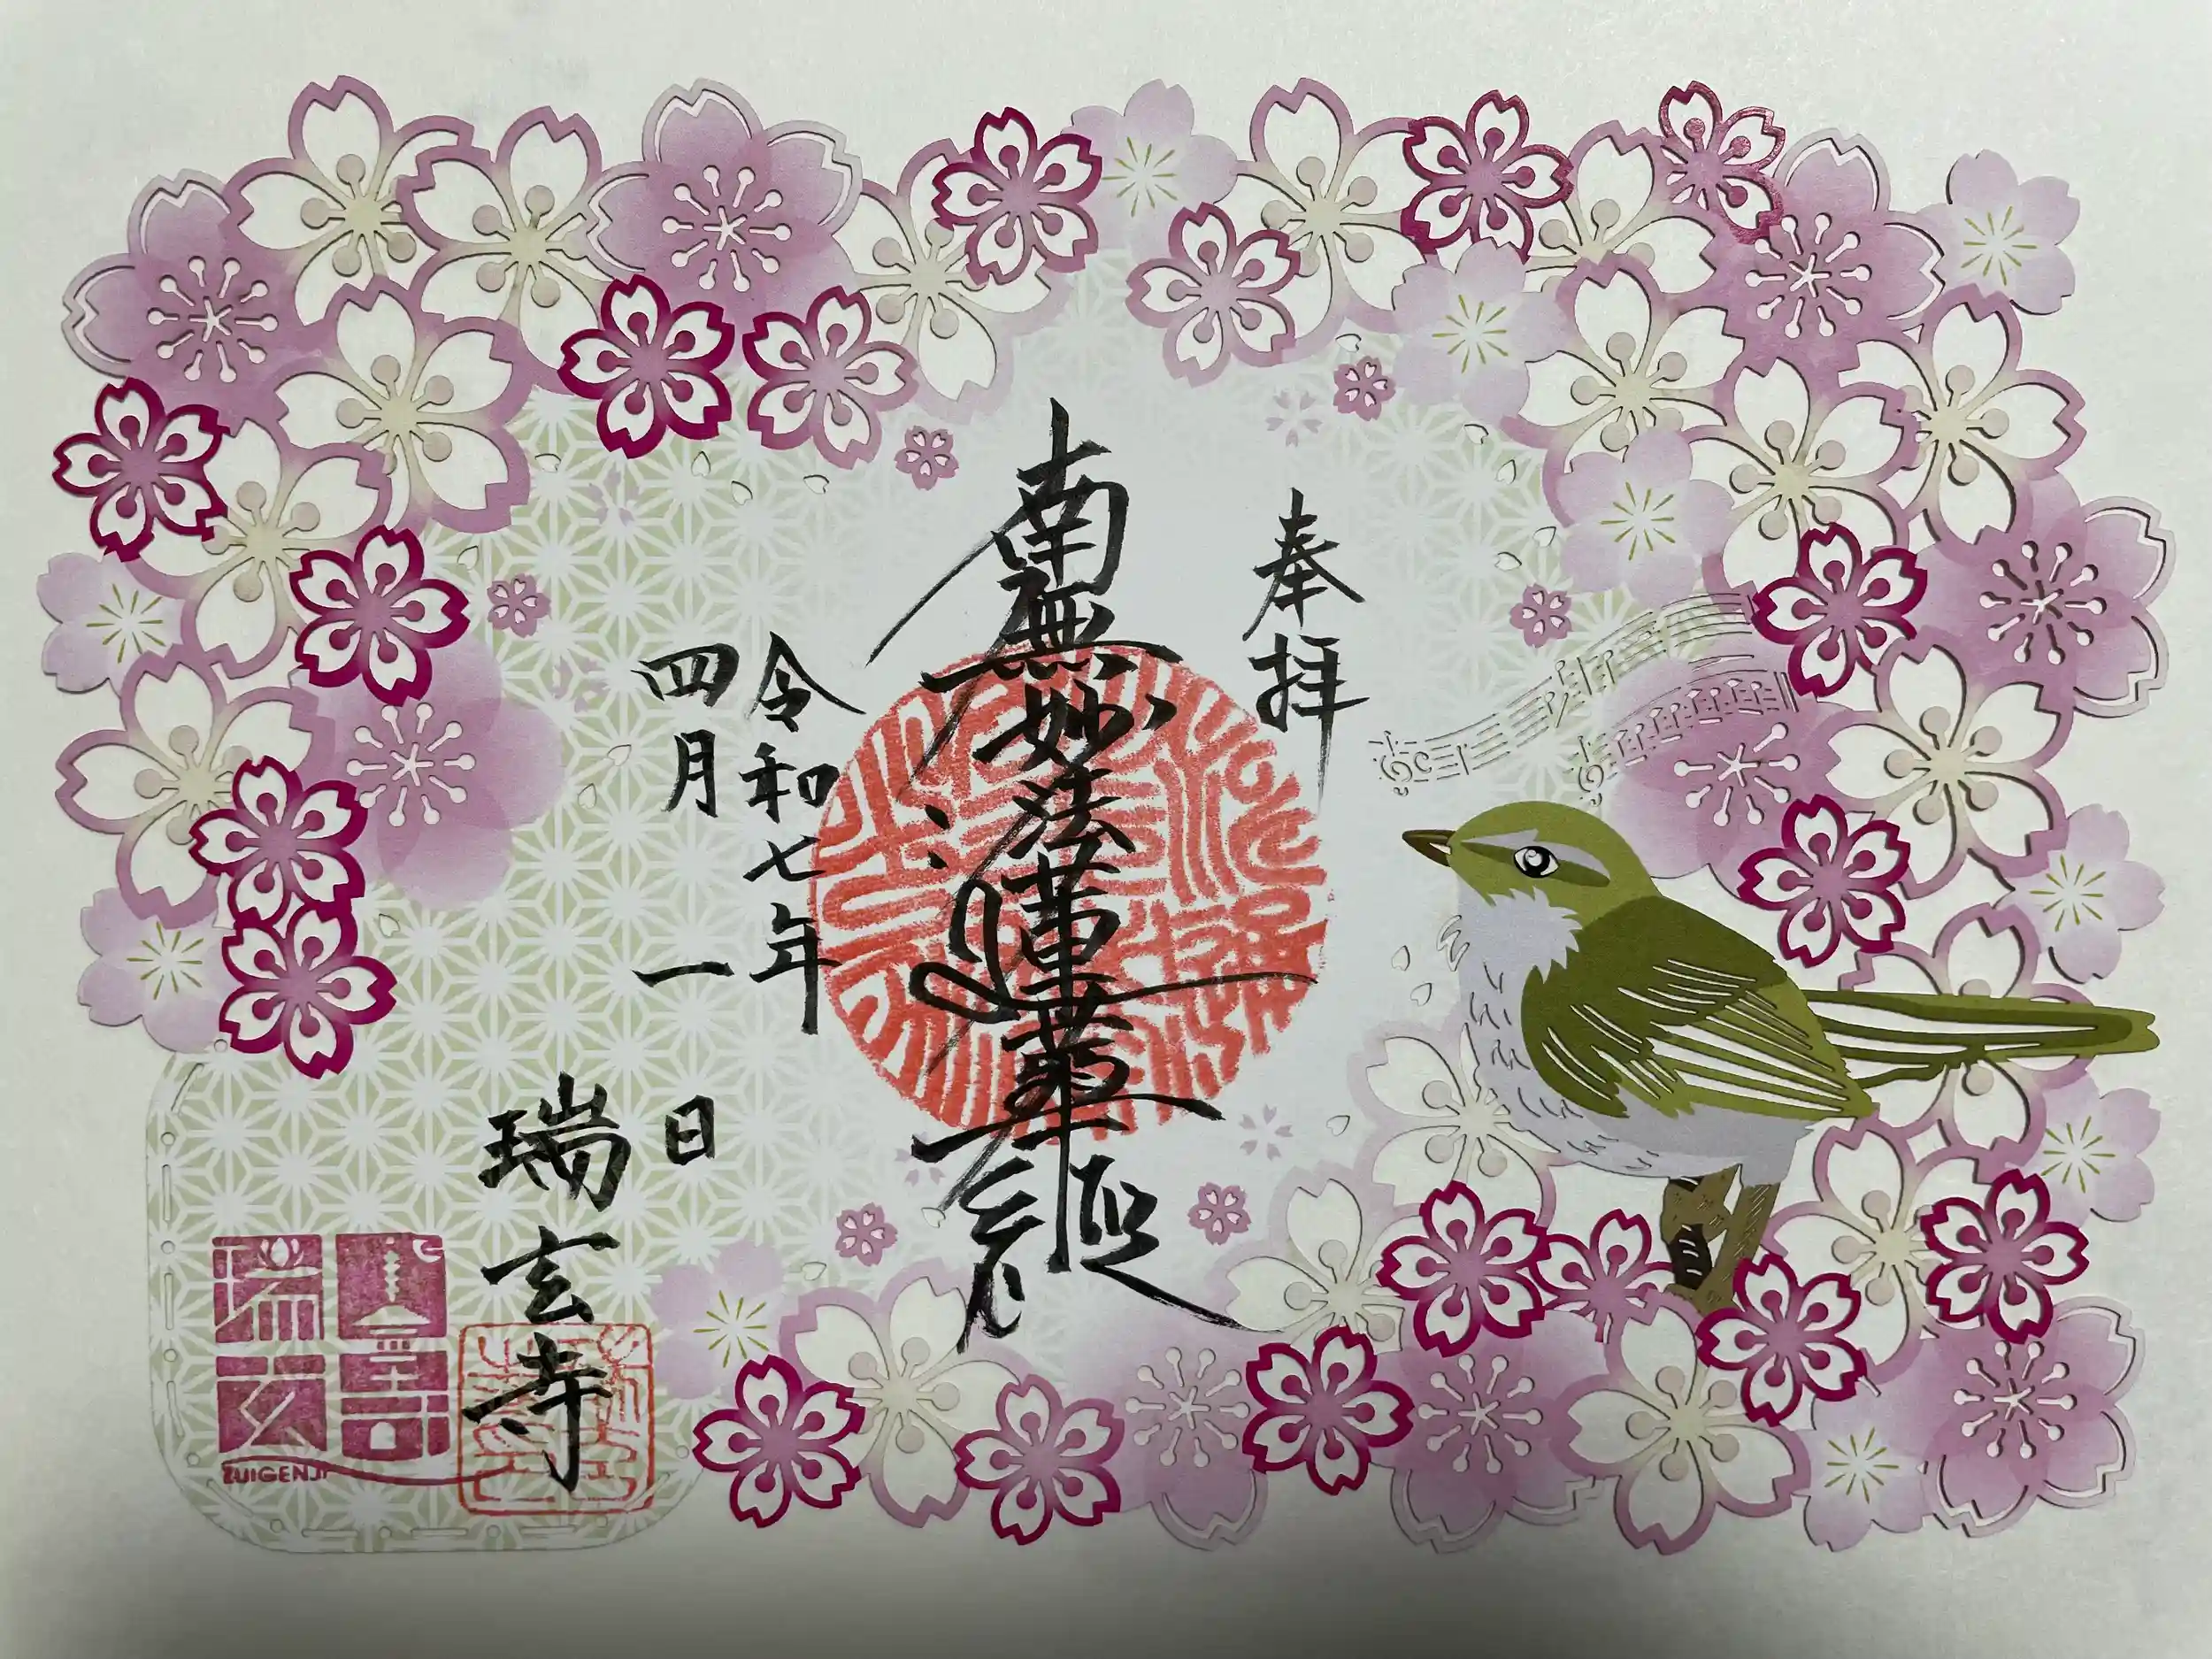 奉拝
南無妙法蓮華経
令和七年
四月一日
瑞玄寺
瑞玄寺
ZUIGENJI